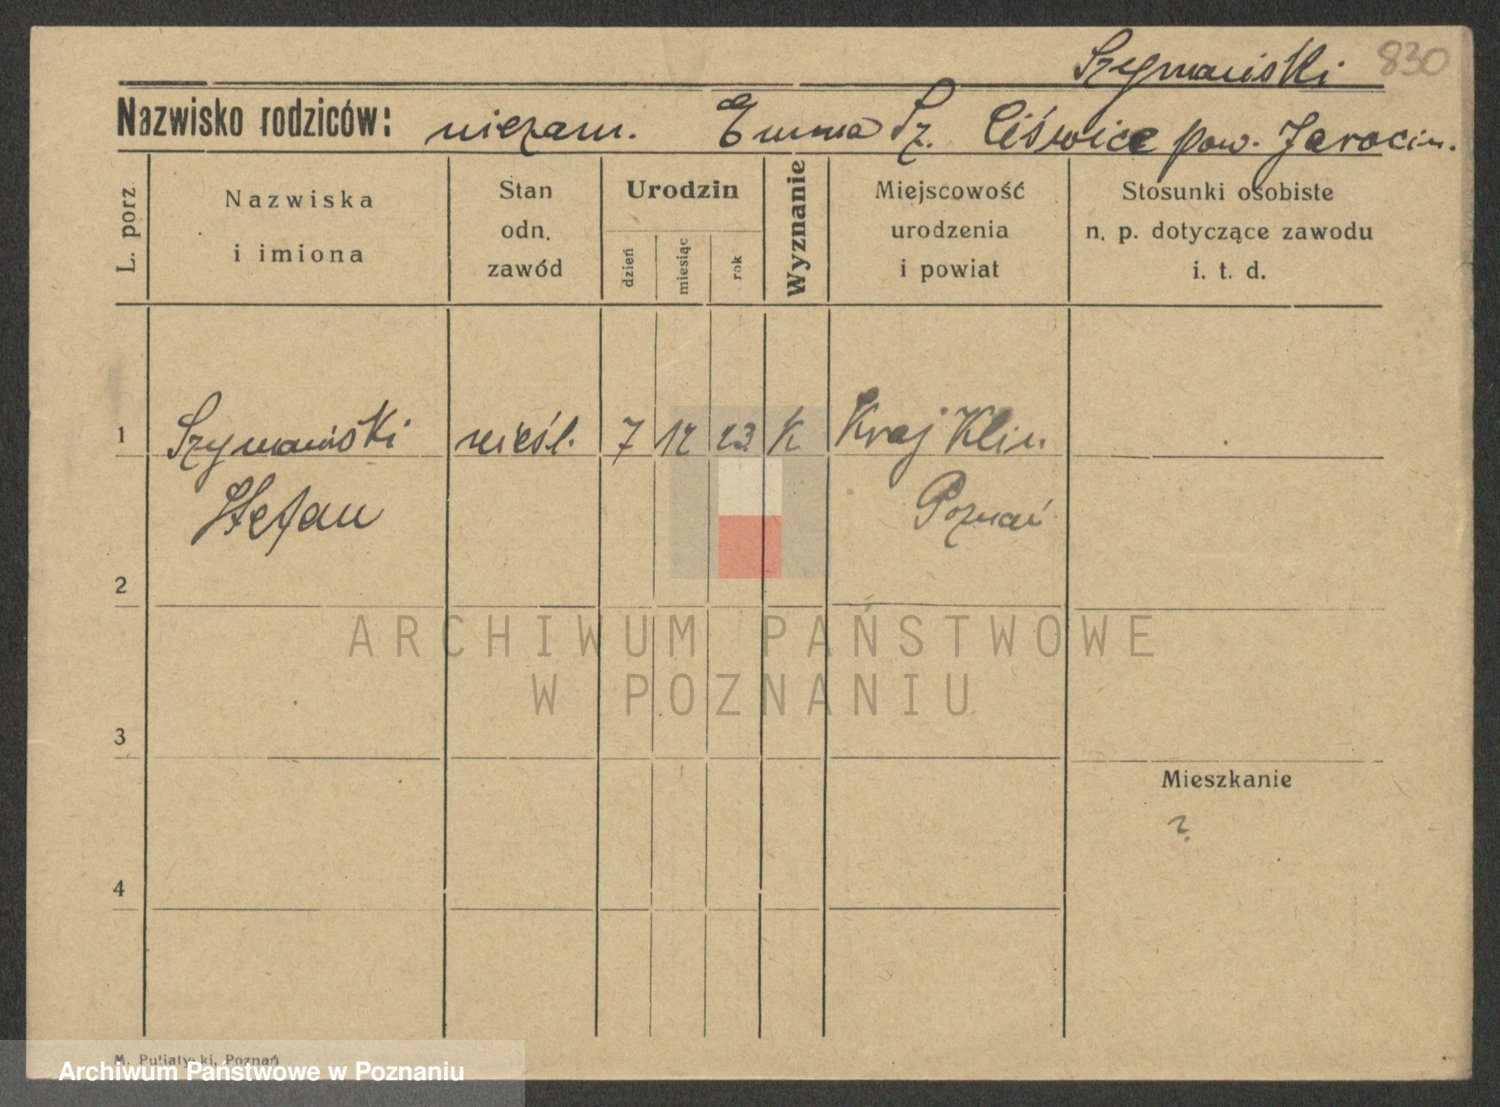 Szymański 830
Nazwisko rodziców: niezam. Emma Sz. Ciświca pow. Jarocin.
L. porz.
Nazwiska
i imiona
Stan
odn.
zawód
Urodzin
dzień
miesiąc
rok
Wyznanie
Miejscowość
urodzenia
i powiat
Stosunki osobiste
n. p. dotyczące zawodu
i. t. d.
1 Szymański nieśl. 7 12 23 K Kraj Klin.
Stefan Poznań
2
ARCHIWUM PAŃSTWOWE
W POZNANIU
3
Mieszkanie
?
4
M. Putiatycki, Poznań
Archiwum Państwowe w Poznaniu